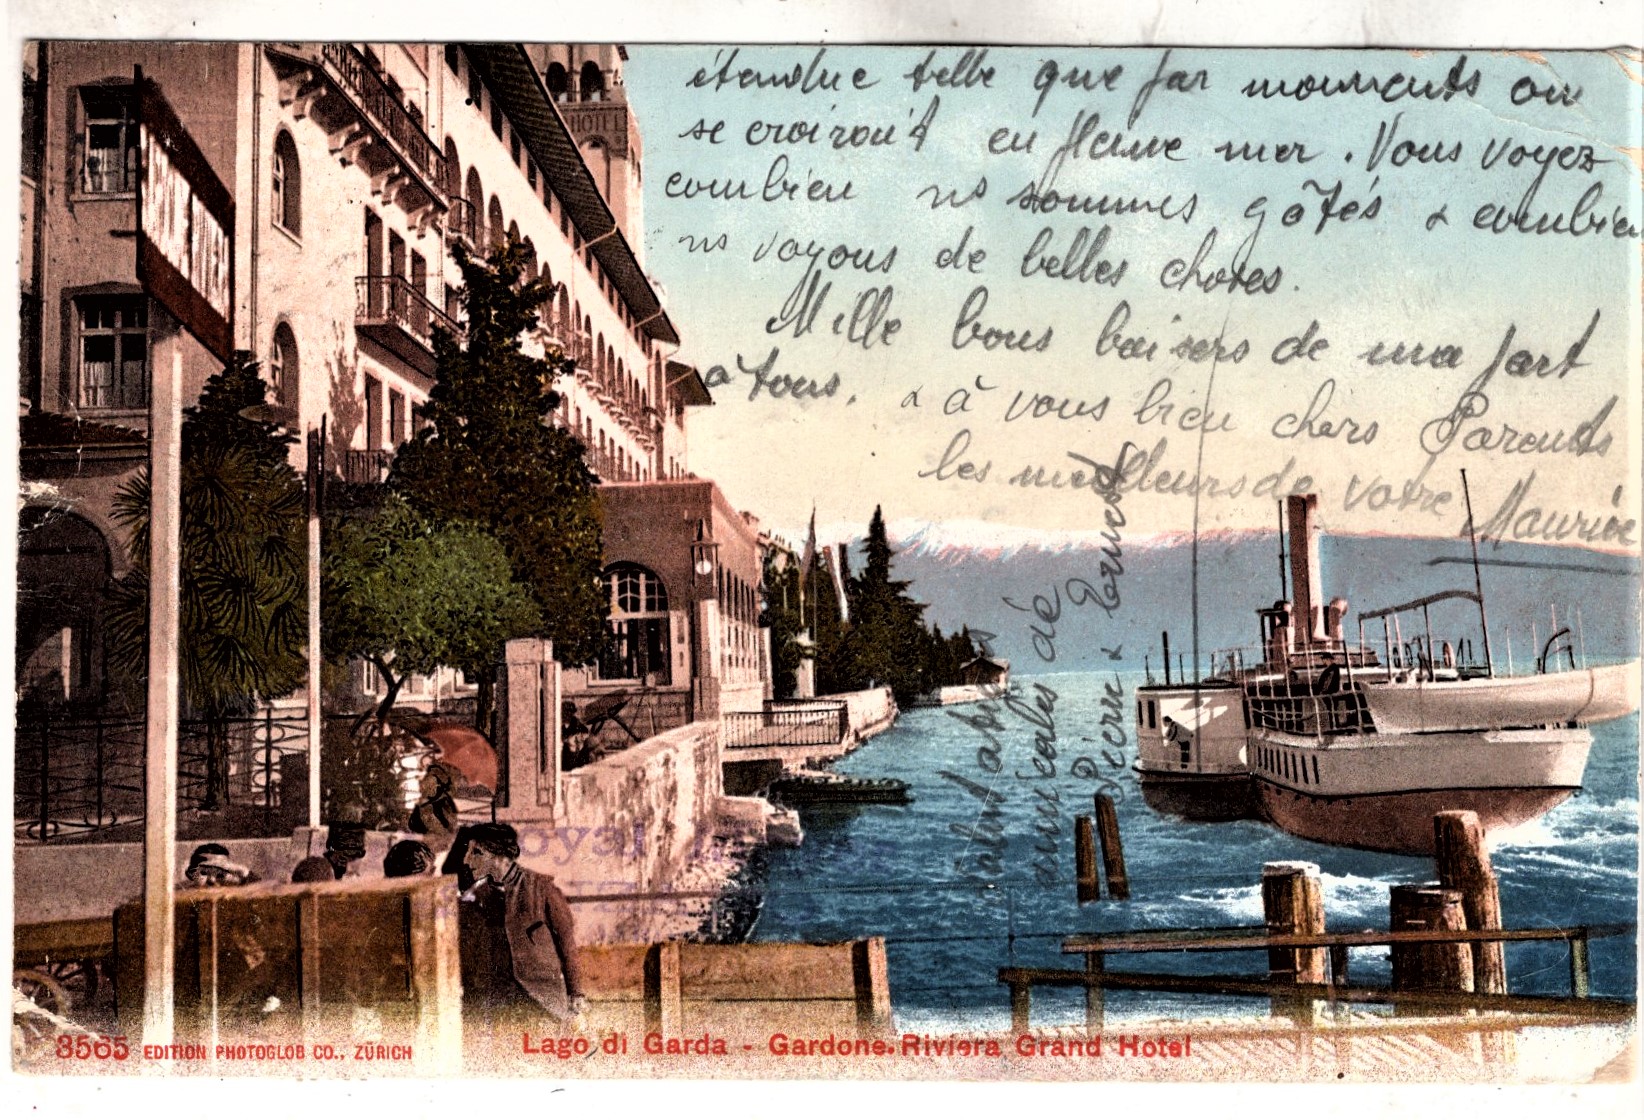 étendue telle que par moments on
se croirait en pleine mer. Vous voyez
combien ns sommes gâtés & combien
ns voyons de belles choses.
Mille bons baisers de ma part
à tous. & à vous bien chers Parents
les meilleurs de votre Maurice
de
Pierre & Ernest
HOTEL
oyal
3565 EDITION PHOTOGLOB CO., ZÜRICH
Lago di Garda - Gardone-Riviera Grand Hotel